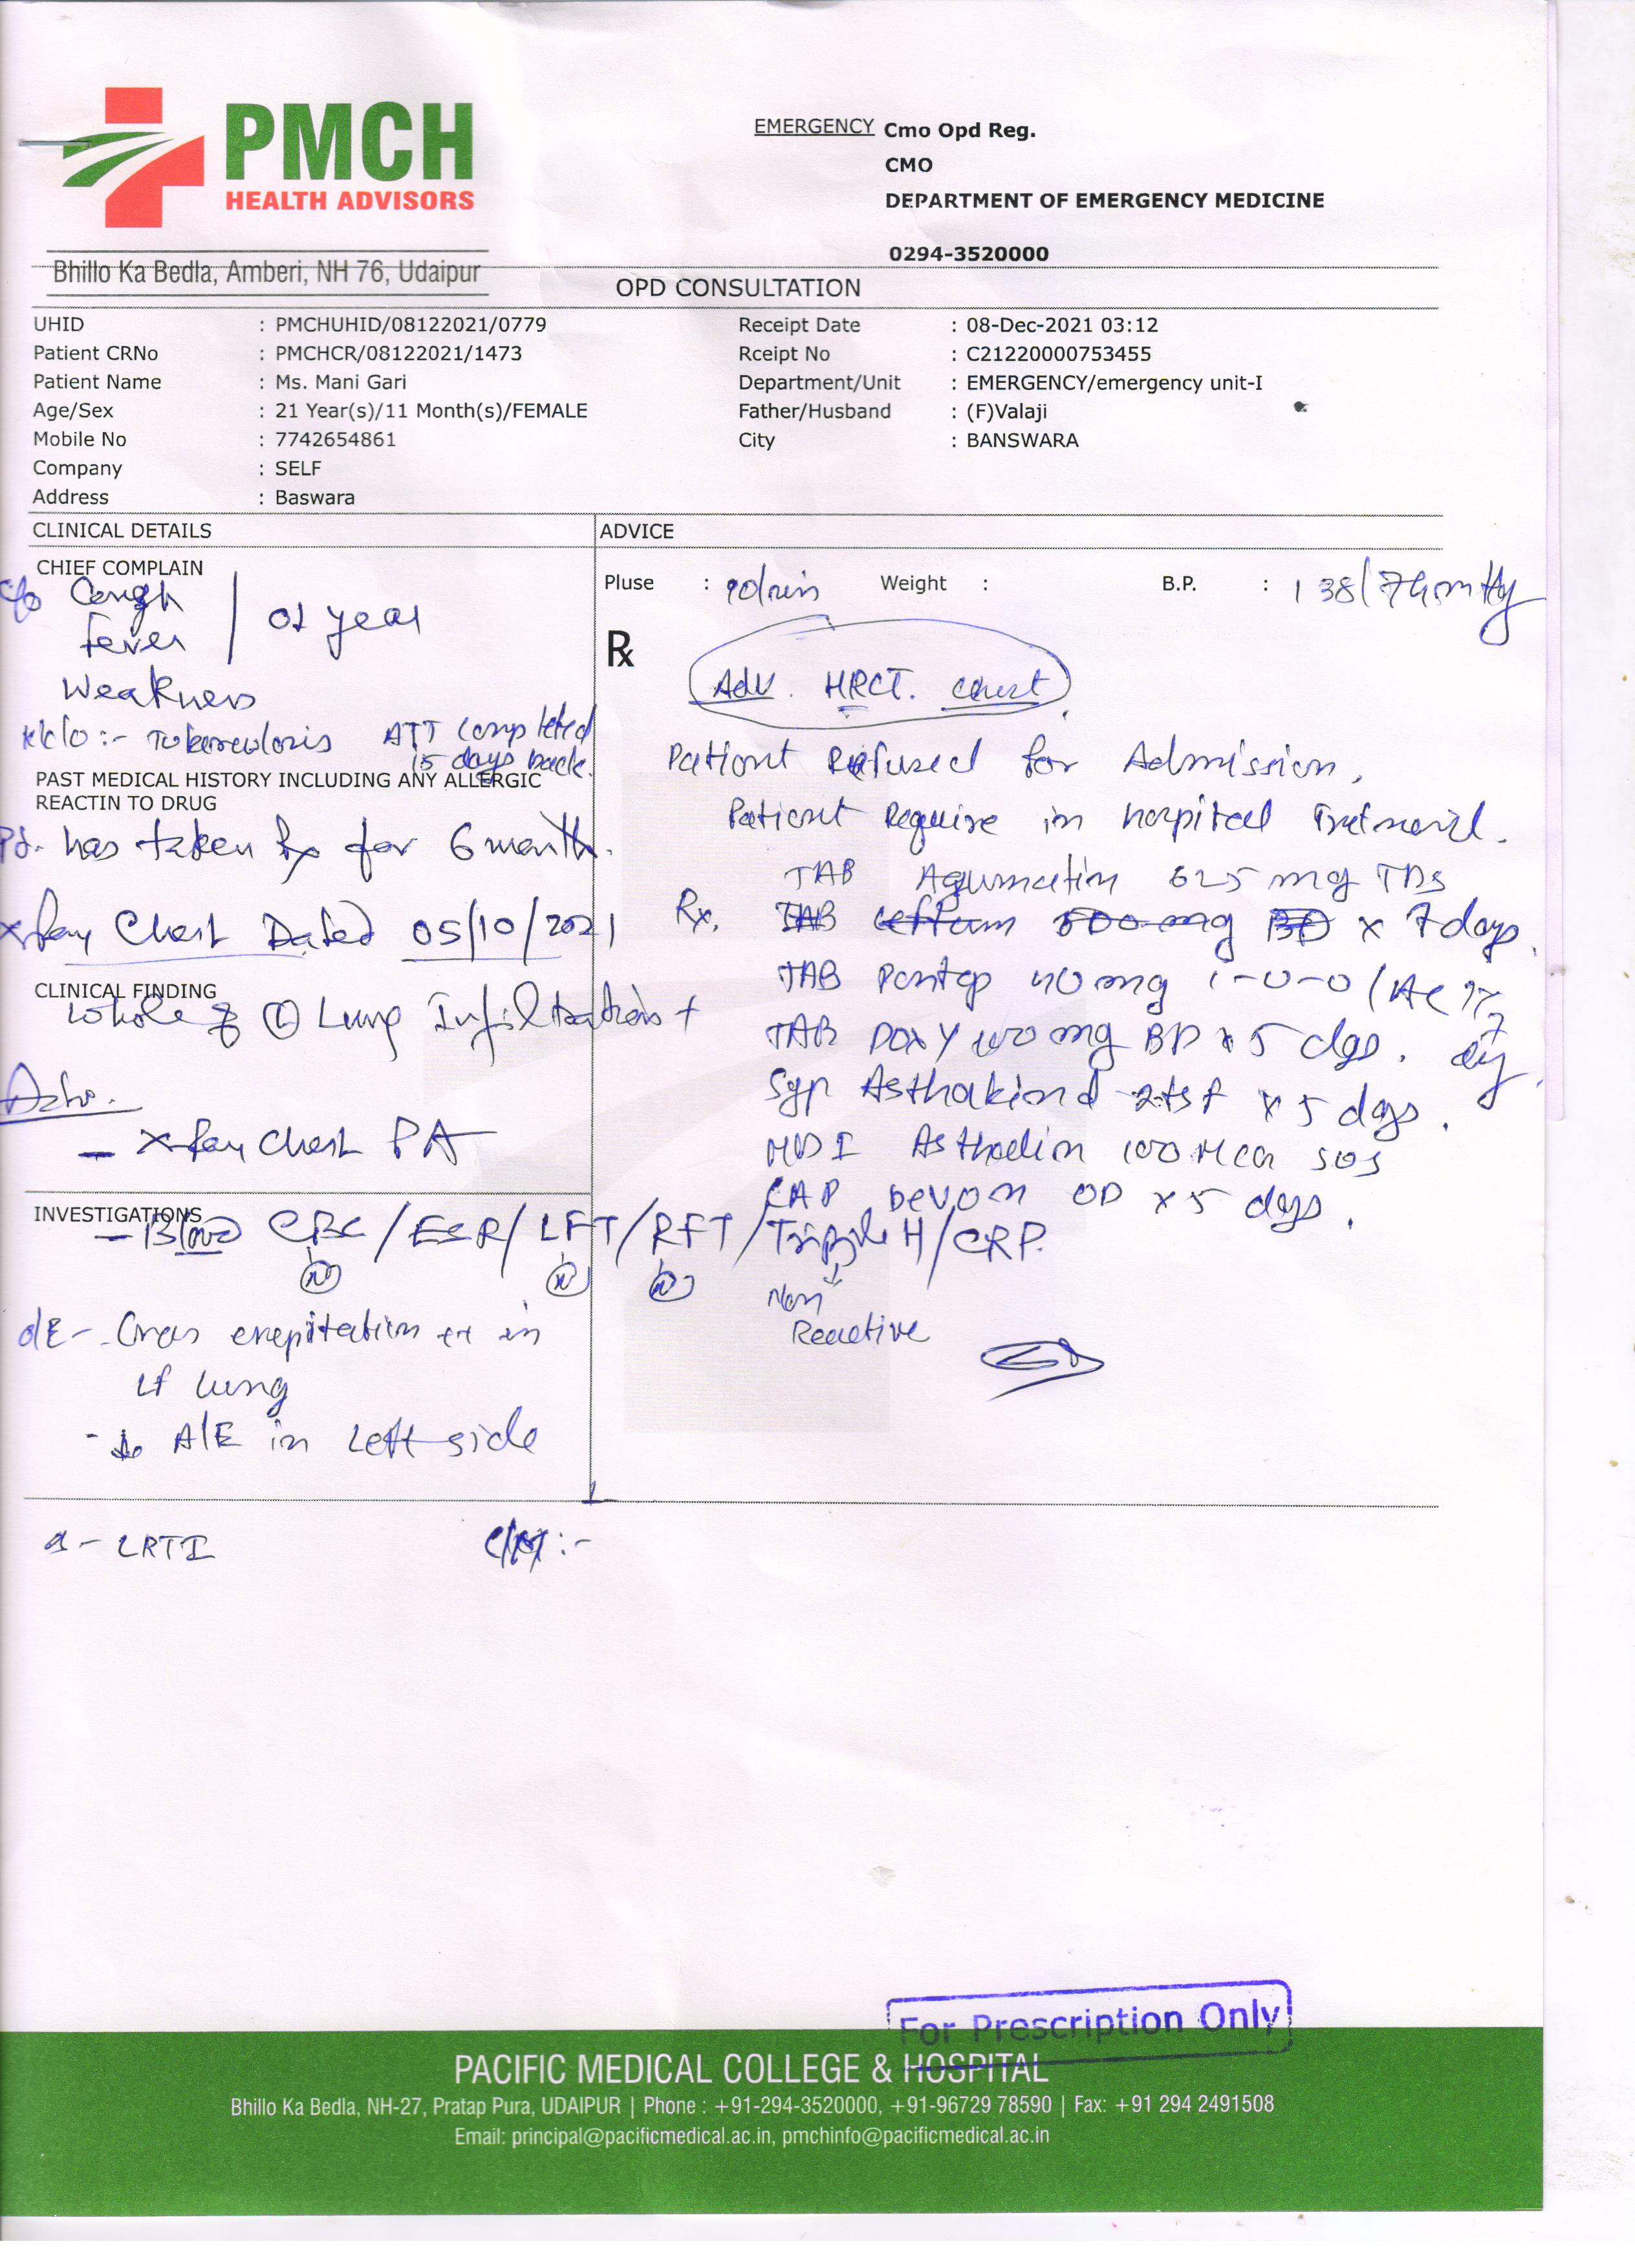 PMCH
HEALTH ADVISORS
Bhillo Ka Bedla, Amberi, NH 76, Udaipur
EMERGENCY Cmo Opd Reg.
CMO
DEPARTMENT OF EMERGENCY MEDICINE
0294-3520000
OPD CONSULTATION
UHID : PMCHUHID/08122021/0779 Receipt Date : 08-Dec-2021 03:12
Patient CRNo : PMCHCR/08122021/1473 Rceipt No : C21220000753455
Patient Name : Ms. Mani Gari Department/Unit : EMERGENCY/emergency unit-I
Age/Sex : 21 Year(s)/11 Month(s)/FEMALE Father/Husband : (F)Valaji
Mobile No : 7742654861 City : BANSWARA
Company : SELF
Address : Baswara
CLINICAL DETAILS
CHIEF COMPLAIN
c/o Cough
Fever
01 year
Weakness
K/c/o :- Tuberculosis ATT completed
15 days back.
PAST MEDICAL HISTORY INCLUDING ANY ALLERGIC
REACTIN TO DRUG
Pt. has taken Rx for 6 month.
X-Ray Chest Dated 05/10/2021
CLINICAL FINDING
Whole of (L) Lung Infiltrations +
Adv.
- X-Ray Chest PA
INVESTIGATIONS
- Blood CBC/ESR/LFT/RFT/Tripple H/CRP.
(N) (N) (N)
Non
Reactive
O/E - crepitation ++ in
Lf lung
- A/E in Left side
- LRTI
ADVICE
Pluse : 90/min Weight : B.P. : 138/74mmHg
Rx
Adv. HRCT. chest
Patient Refused for Admission.
Patient Require in hospital Tretment.
TAB 625 mg TDS
Rx. TAB 500 mg BD x 7 days.
TAB Pantop 40 mg 1-0-0 / AC x 7
day
TAB DOXY 100 mg BD x 5 days.
Syp Asthakind 2tsf x 5 days.
MDI Asthalin 100 Mcg SOS
CAP Bevon OD x 5 days.
For Prescription Only
PACIFIC MEDICAL COLLEGE & HOSPITAL
Bhillo Ka Bedla, NH-27, Pratap Pura, UDAIPUR | Phone : +91-294-3520000, +91-96729 78590 | Fax: +91 294 2491508
Email: principal@pacificmedical.ac.in, pmchinfo@pacificmedical.ac.in